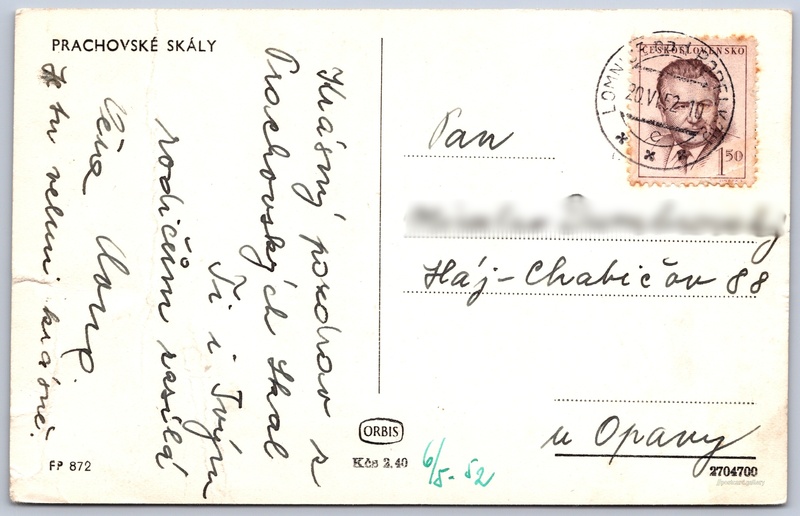 PRACHOVSKÉ SKÁLY
Krásný pozdrav z
Prachovských Skal
Ti i Tvým
rodičům zasílá
Je tu velmi krásně.
ČESKOSLOVENSKO
1 50
20.VI.52-10
Pan
Háj-Chabičov 88
u Opavy
ORBIS
Kčs 2.40
6/5-52
FP 872
2704700